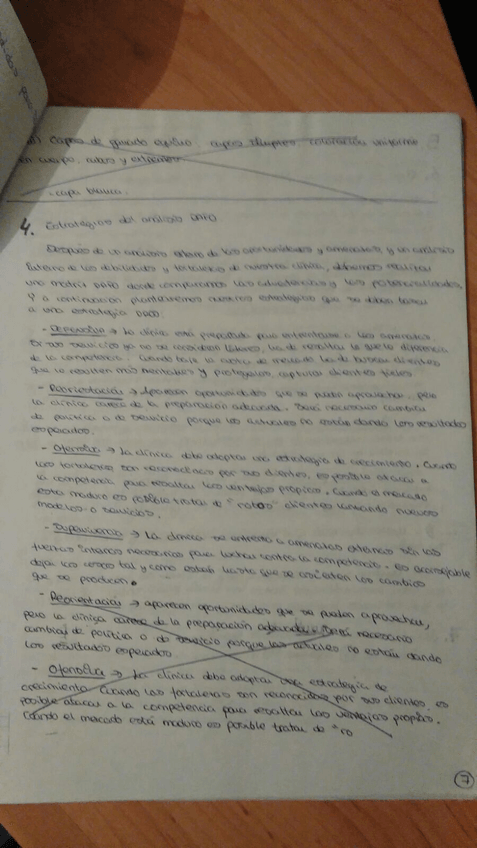 Capas de guardo equino. capas simples coloración uniforme
en cuerpo, cabos y extremos
- capa blanca.
4. Estrategias del análisis DAFO
Después de un análisis externo de las oportunidades y amenazas, y un análisis
interno de las debilidades y fortalezas de nuestra clínica, debemos realizar
una matriz DAFO donde comparamos las advertencias y las potencialidades.
Y a continuación plantearemos nuestras estrategias que se deben tomar
a una estrategia DAFO.
- Defensiva → la clínica está preparada para enfrentarse a las amenazas.
Si sus servicios ya no se consideran líderes, ha de resaltar lo que le diferencia
de la competencia. Cuando baje la cuota de mercado ha de buscar clientes
que le resulten más rentables y protegerlos, capturar clientes fieles.
- Reorientación → Aparecen oportunidades que se pueden aprovechar, pero
la clínica carece de la preparación adecuada. Será necesario cambiar
de política o de servicio porque los actuales no están dando los resultados
esperados.
- Ofensiva → La clínica debe adoptar una estrategia de crecimiento. Cuando
las fortalezas son reconocidas por sus clientes, es posible atacar a
la competencia para resaltar las ventajas propias. Cuando el mercado
esta maduro es posible tratar de "robar" clientes lanzando nuevos
modelos o servicios.
- Supervivencia → La clínica se enfrenta a amenazas externas sin las
fuerzas internas necesarias para luchar contra la competencia. es aconsejable
dejar las cosas tal y como están hasta que se asienten los cambios
que se producen.
- Reorientación → aparecen oportunidades que se pueden aprovechar,
pero la clínica carece de la preparación adecuada. Será necesario
cambiar de política o de servicio porque los actuales no están dando
los resultados esperados.
- Ofensiva → La clínica debe adoptar una estrategia de
crecimiento. Cuando las fortalezas son reconocidas por sus clientes, es
posible atacar a la competencia para resaltar las ventajas propias.
Cuando el mercado está maduro es posible tratar de "ro
7